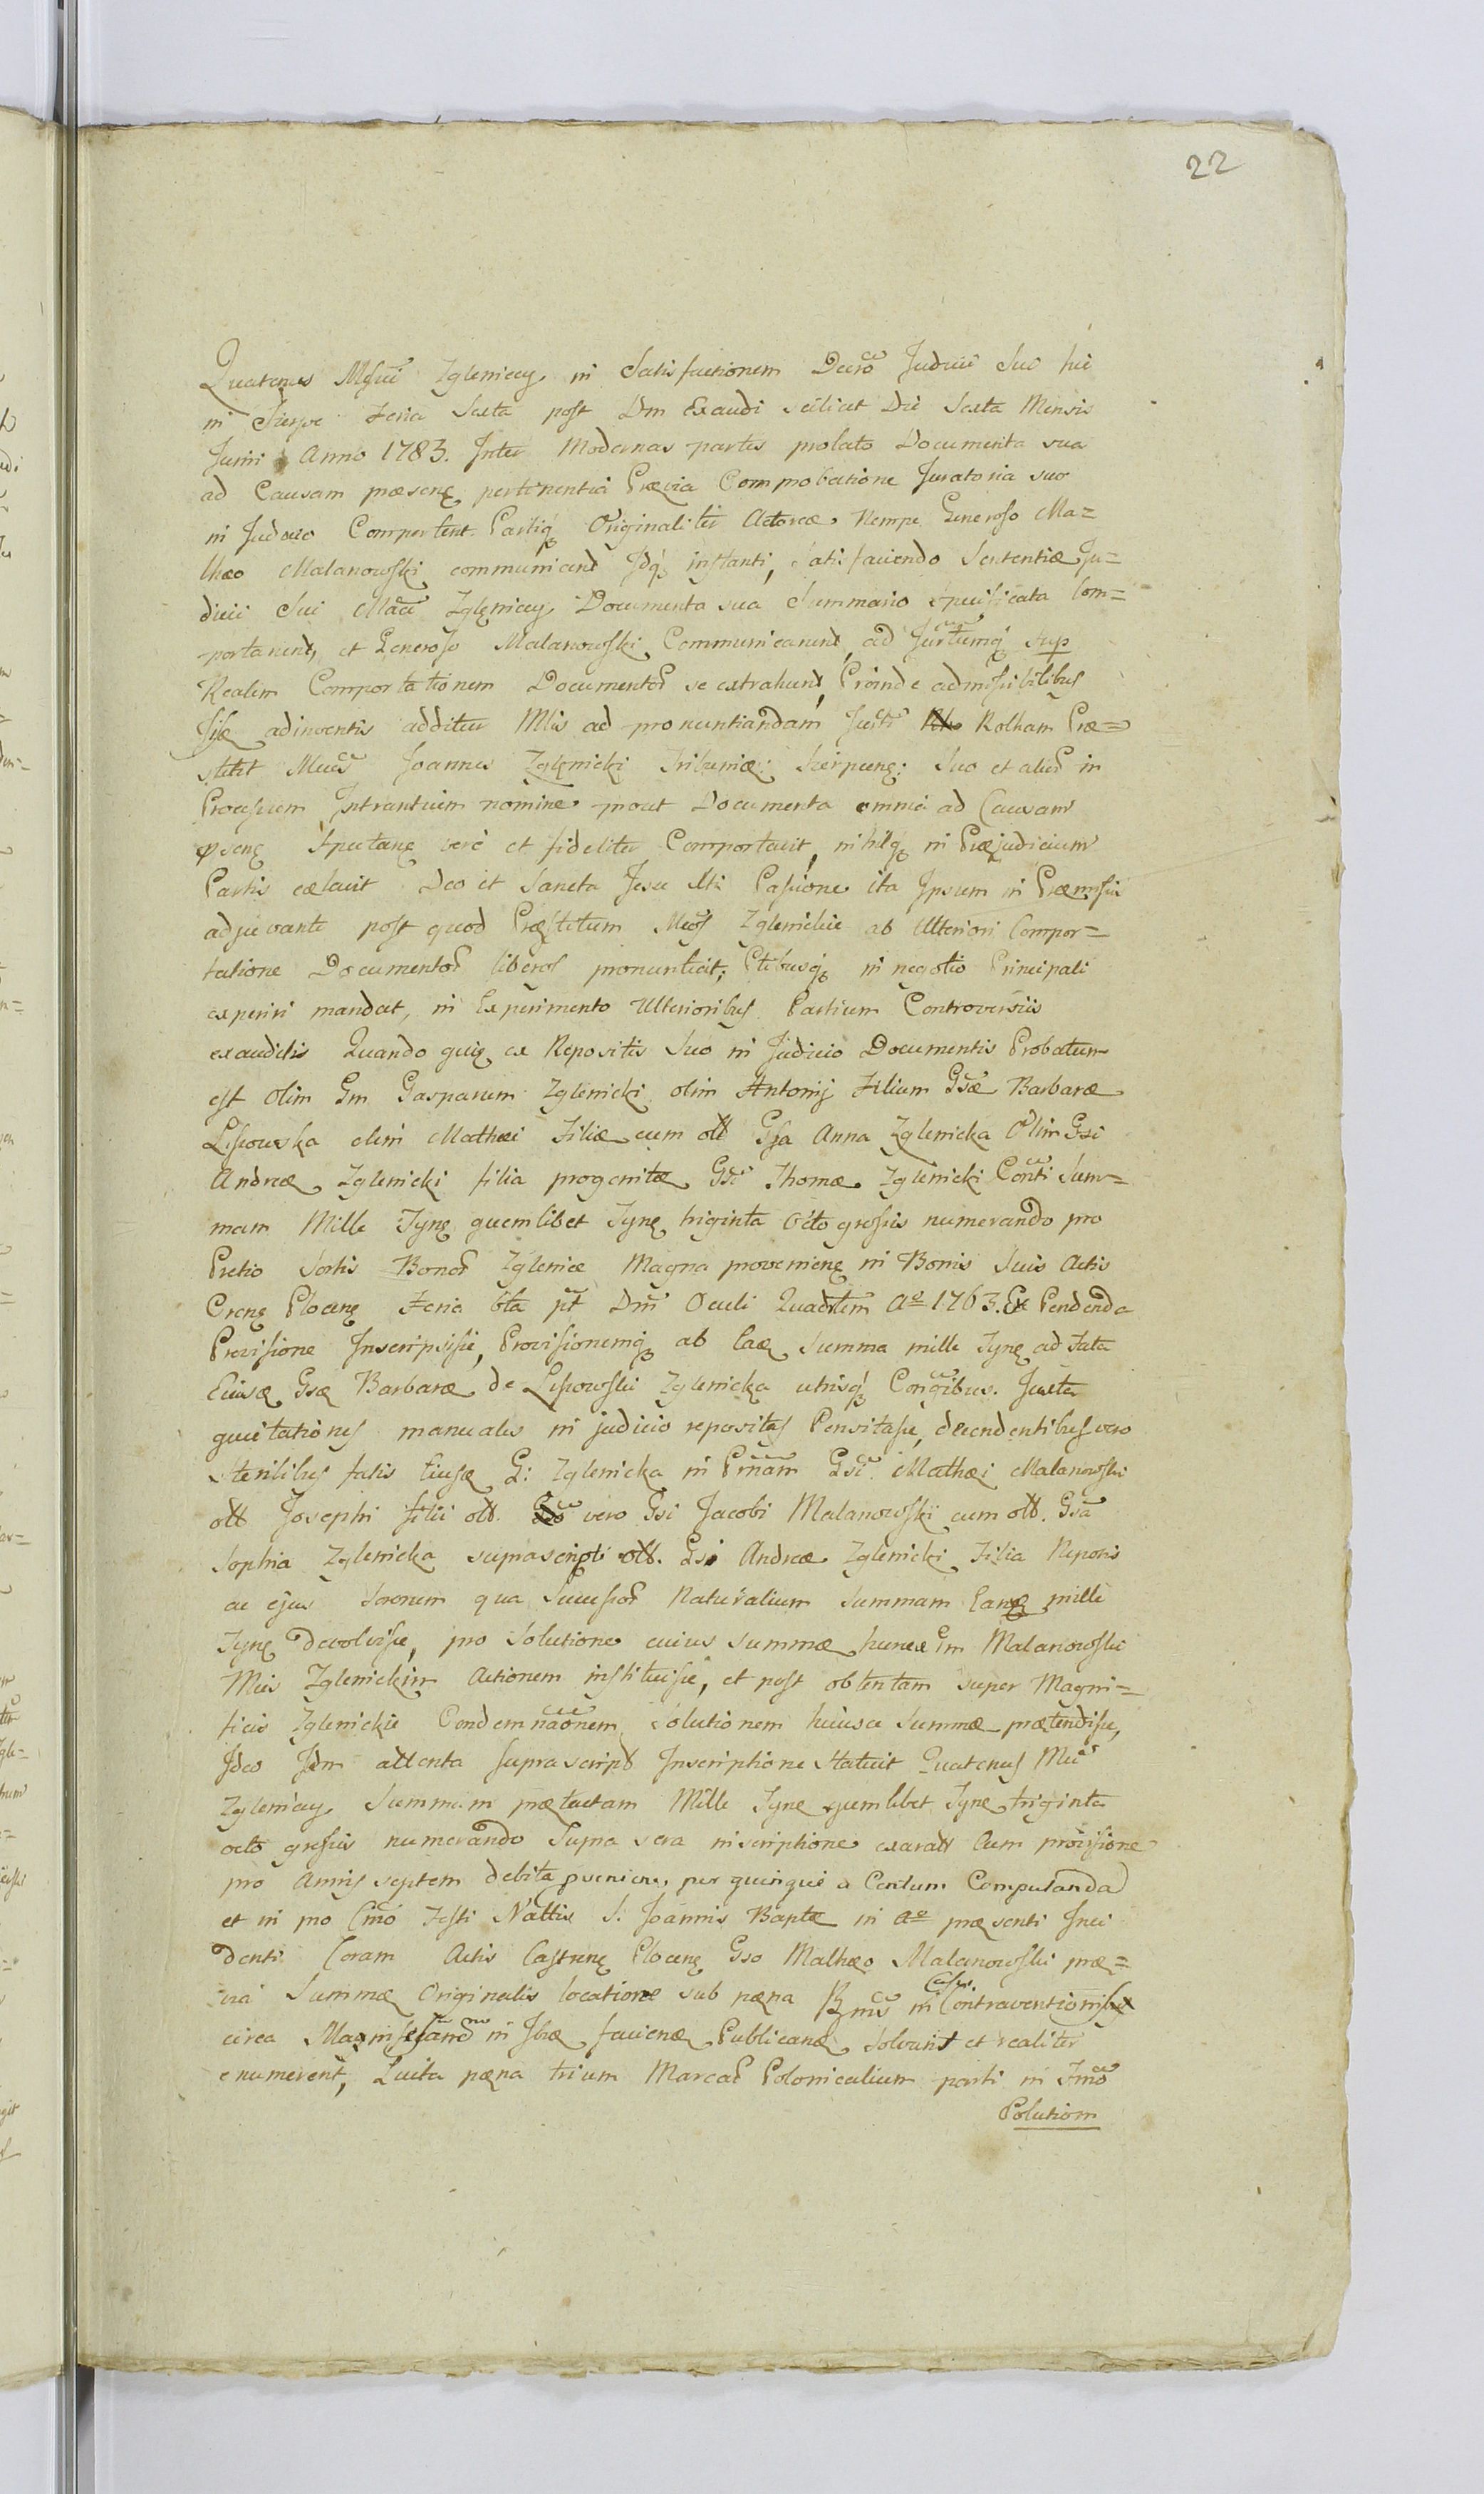 22
Quatenus Mgfici Zgleniccy in Satisfactionem Decro Judicii Sui hic
in Sierpc Feria Sexta post Dm Exaudi scilicet Die Sexta Mensis
Junii Anno 1783. Inter Modernas partes prolato Documenta sua
ad Causam præsenę pertinentia Prævia Comprobatione Juratoria suo
in Judicio Comportent Partiq Originaliter Actoreæ Nempe Generoso Ma=
thæo Malanowski communicent Idq instanti, Satisfaciendo Sententiæ Ju=
dicii Sui Mâci Zgleniccy Documenta sua Summario specificata Com=
portarunt, et Generoso Malanowski Communicarunt, ad Jurtumq sup
Realem Comportationem Documentor se extrahunt, Proinde admissibilibus
Iisse adinventis additur Mlis ad pronuntiandam Justi Rotham Præ=
stitit Mucus Joannes Zglenicki Tribunię: Sierpcenę: Suo et alior in
Processum Intrantium nomine prout Documenta omnia ad Causam
psenę Spectanę verè et fideliter Comportavit, nihilq in Præjudicium
Partis cælavit Deo et Sancta Jesu Xti Passione ita Ipsum in Præmissis
adjuvante post quod Præstitum Mcos Zglenickie ab Ulteriori Compor=
tatione Documentor liberos pronuntiat; Ptibusq in negotio Principali
experiri mandat, in Experimento Ulterioribus Partium Controversiis
exauditis Quando quię ex Repositis Suo in Judicio Documentis Probatum
est olim Gm Gasparum Zglenicki olim Antonij Filium Gsæ Barbaræ
Lissowska olim Mathæi Filiæ cum olt Gsa Anna Zglenicka Olim Gsi
Andreæ Zglenicki filia progenitæ Gsi Thomæ Zglenicki Conti Sum=
mam Mille Tynę quemlibet Tynę triginta octo grossis numerando pro
Pretio Sortis Bonor Zglenice Magna provenienę in Bonis Suis Actis
Crenę Plocenę Feria 6ta pt Dm Oculi Quadtem Aº 1763. Ex Pendenda
Provisione Inscripsisse, Provisionemq ab eaę Summa mille Tynę ad Fata
Eiusę Gsæ Barbaræ de Lissowskie Zglenicka utrisq Congibus. Juxta
quietationes manuales in judicio repositas Pensitasse, decendentibus vero
Sterilibus fatis Eiusę G: Zglenicka in Prnam Gsi Mathæi Malanowski
olt Josephi filii olt. vero Gsi Jacobi Malanowskii cum olt. Gsa
Sophia Zglenicka suprascripti olt. Gsi Andreæ Zglenicki Filia Nepotis
ac ejus Sororum qua Successor Naturalium Summam Eanę mille
Tynę devolvisse, pro Solutione cuius summæ huncce Gm Malanowski
Mcis Zglenickim Actionem instituisse, et post obtentam super Magni=
ficis Zglenickie Condemnaonem Solutionem huiusce Summæ prætendisse,
Ideo Idm attenta suprascript Inscriptione Statuit Quatenus Mci
Zgleniccy Summam prætactam Mille Tynę quemlibet Tynę triginta
octo grossis numerando Supra scra inscriptione exarat Cum provisione
pro Annis septem debita pveniene per quinque a Centum Computanda
et in pro Cmo Festi Nattis S. Joannis Baptæ in Aº præsenti Inci
denti Coram Actis Castrenę Plocenę Gso Mathæo Malanowski præ=
via Summæ Originalis locatione sub pæna Bnis in Casu Contraventionis
circa in Jbæ faciene Publicanę Solvant et realiter
enumerent, Luita pæna trium Marcar Polonicalium parti in Fmo
Solutiom